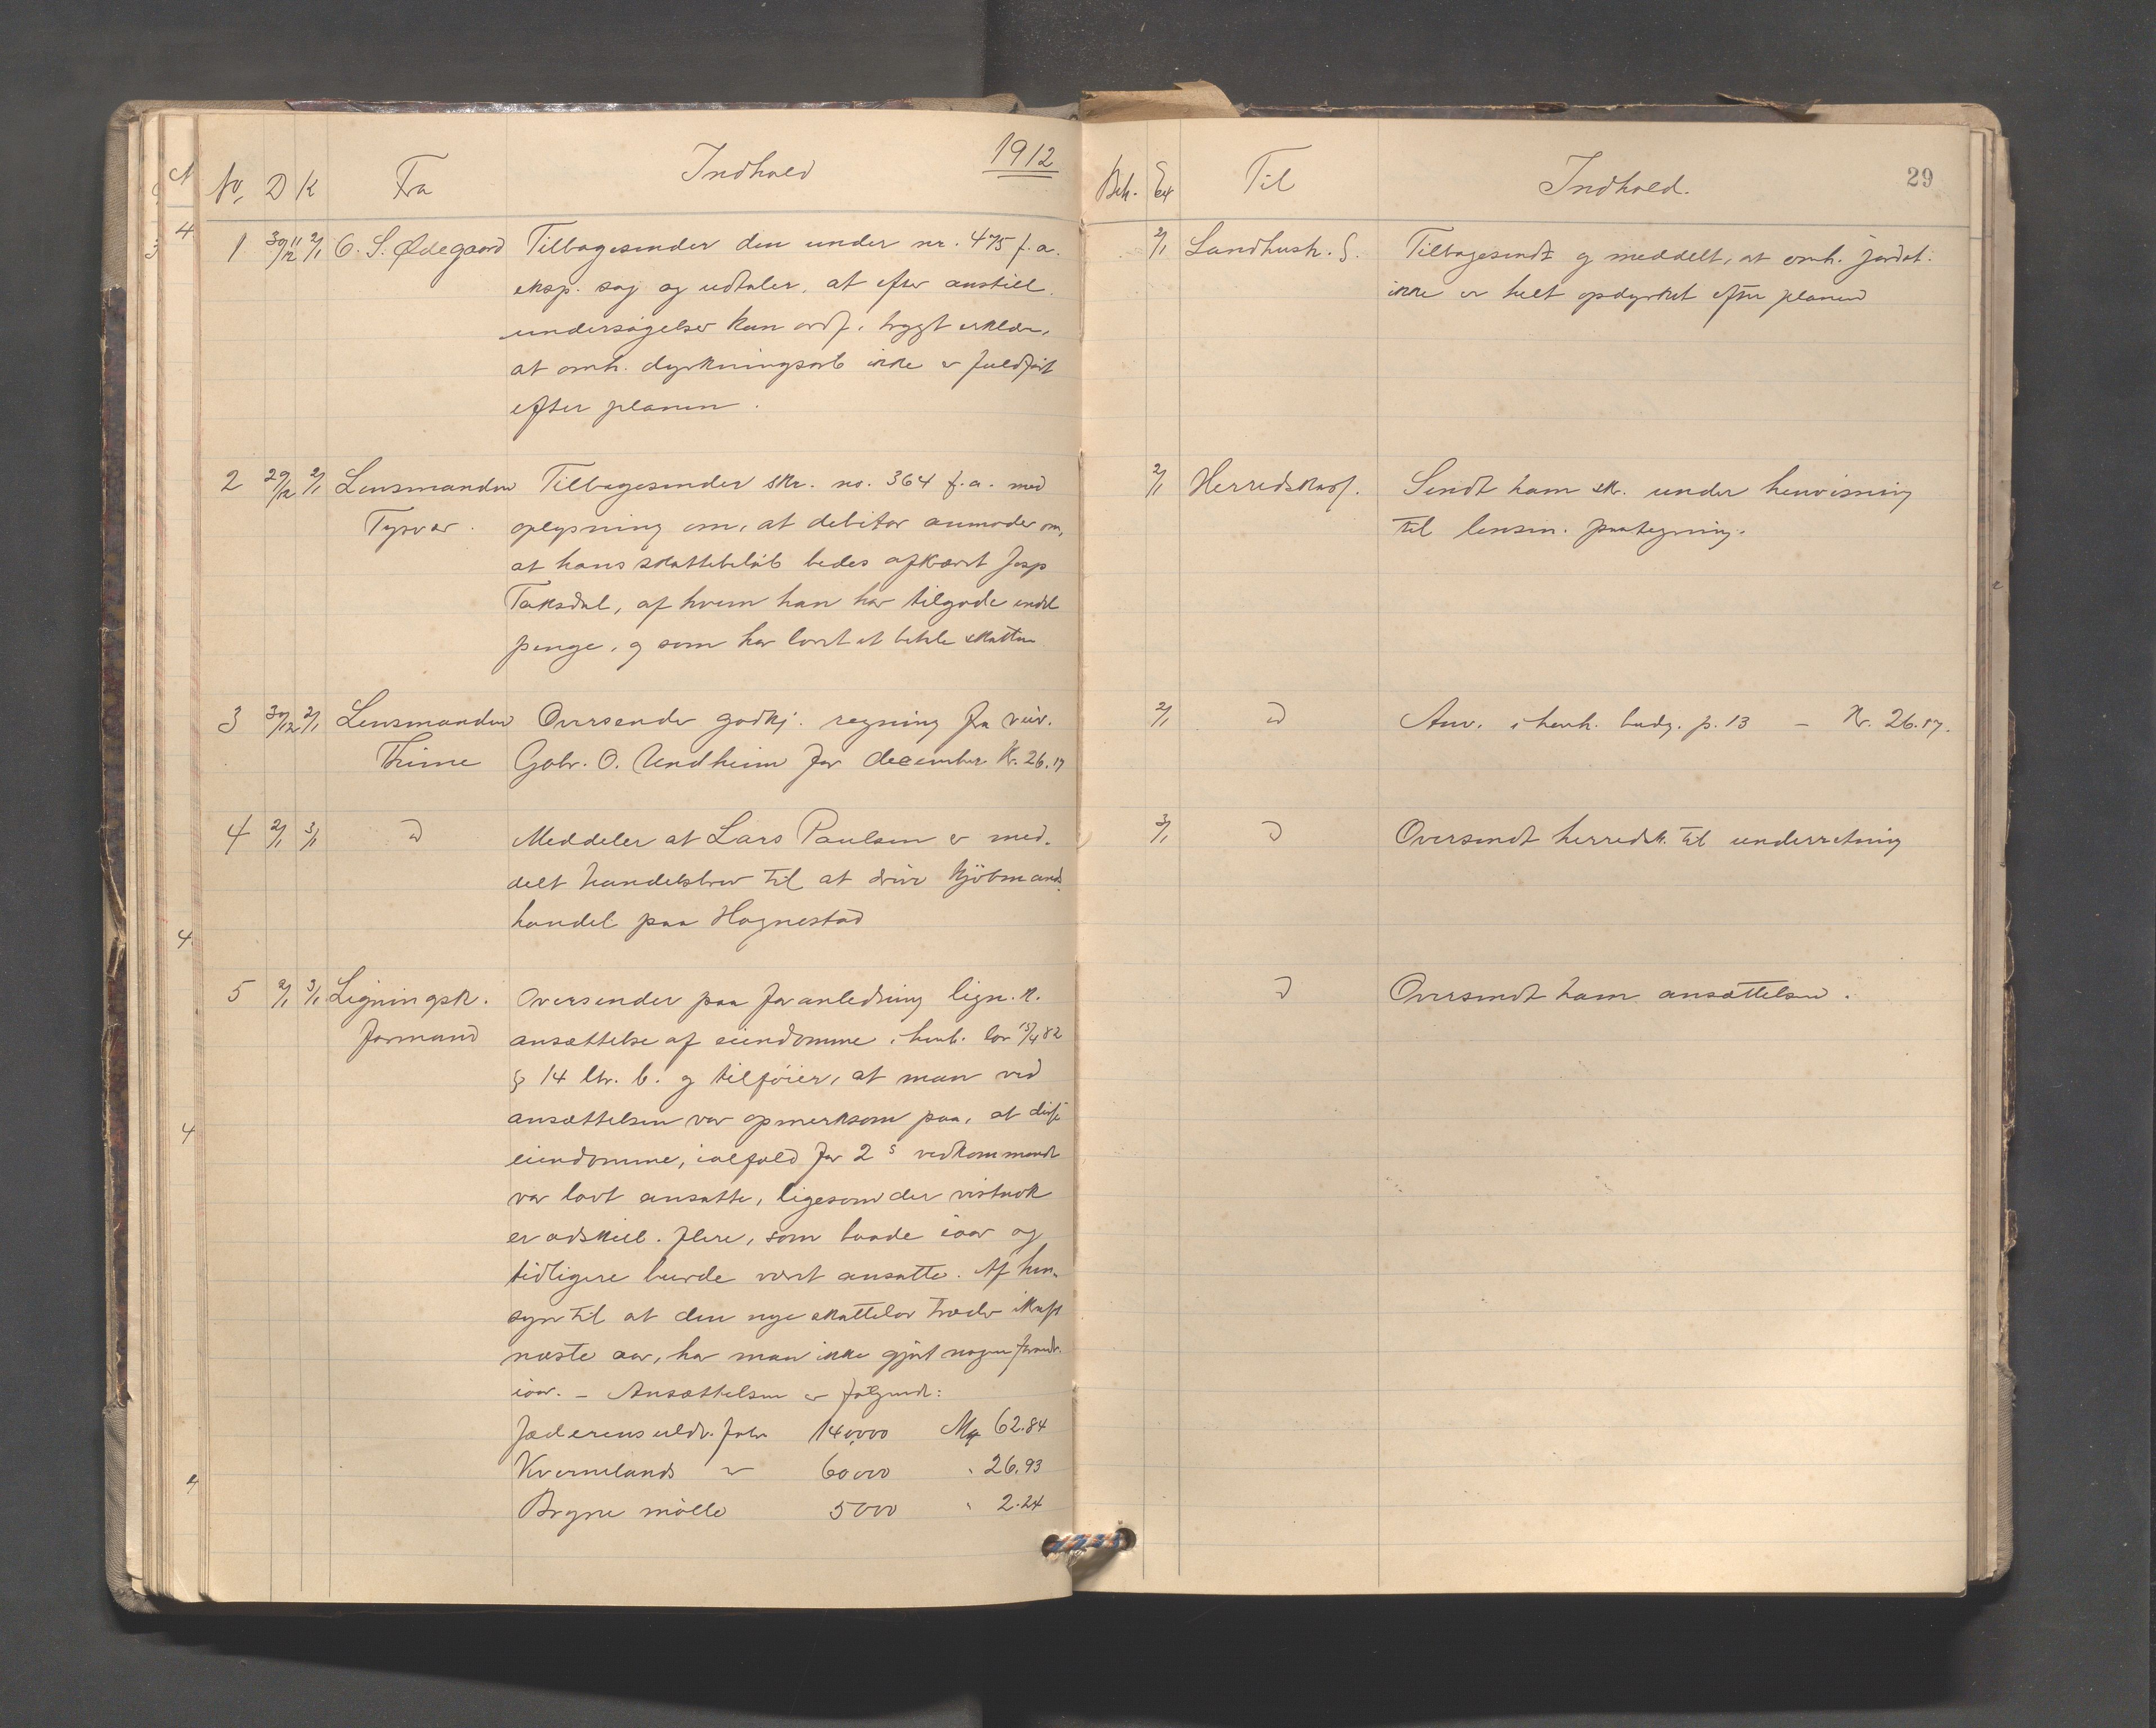 1912
No. D K Fra Indhold
1 30/12 2/1 O. S. Ødegaard Tilbagesender den under nr. 475 f.a.
eksp. sag og udtaler, at efter anstill.
undersøgelser kan ordf. trygt erklære,
at omh. dyrkningsarb ikke er fuldført
efter planen.
2 29/12 2/1 Lensmanden Tilbagesender skr. no. 364 f.a. med
Tysvær. oplysning om, at debitor anmoder om,
at hans skattebeløb bedes afkrævet
Taksdal, af hvem han har tilgode endel
penge, og som har lovet at betale skatten
3 30/12 2/1 Lensmanden Oversender godkj. regning fra veiv.
Thime Gabr. O. Undheim for december Kr. 26.17
4 2/1 3/1 D Meddeler at Lars Paulsen er med-
delt handelsbrev til at drive kjøbmands-
handel paa Hognestad
5 2/1 3/1 Ligningsk. Oversender paa foranledning lign. k.
formand ansættelse af eiendomme i henh. lov 15/4 82
§ 14 ltr. b. og tilføier, at man ved
ansættelsen var opmerksom paa, at disse
eiendomme, ialfald for 2 s vedkommende
var lavt ansatte, ligesom der vistnok
er adskill. flere, som baade iaar og
tidligere burde været ansatte. Af hen-
syn til at den nye skattelov træder ikraft
næste aar, har man ikke gjort nogen forandr.
iaar. – Ansættelsen er følgende:
Jæderens uldv. fabr 140,000 Mk 62.84
Kvernelands " 60000 " 26.93
Bryne mølle 5000 " 2.24
29
Beh. Ex Til Indhold.
2/1 Landhush. S. Tilbagesendt og meddelt, at omh. jordst.
ikke er helt opdyrket efter planen
2/1 Herredskas. Sendt ham skr. under henvisning
til lensm. paategning.
2/1 D Anv. i henh. budg. p. 13 – Kr. 26.17.
3/1 D Oversendt herredsk. til underretning
D Oversendt ham ansættelsen.